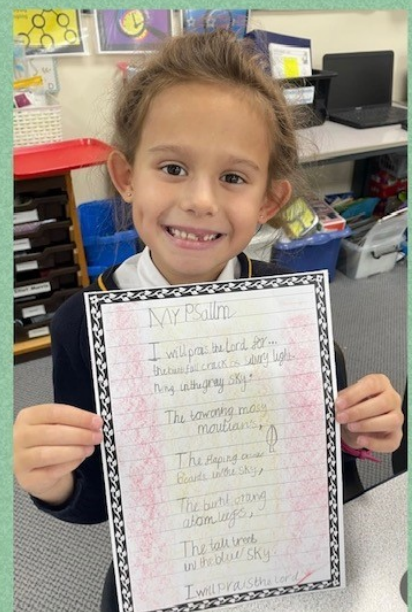 MY Psallm
I will prais the Lord for...
the butiful crack of silvery light-
ning in the gray sky.
The towering mosy
moutians,
The flaping
Boards in the sky,
The burnt orang
atam leefs,
The tall treet
in the blue sky
I will Prais the Lord